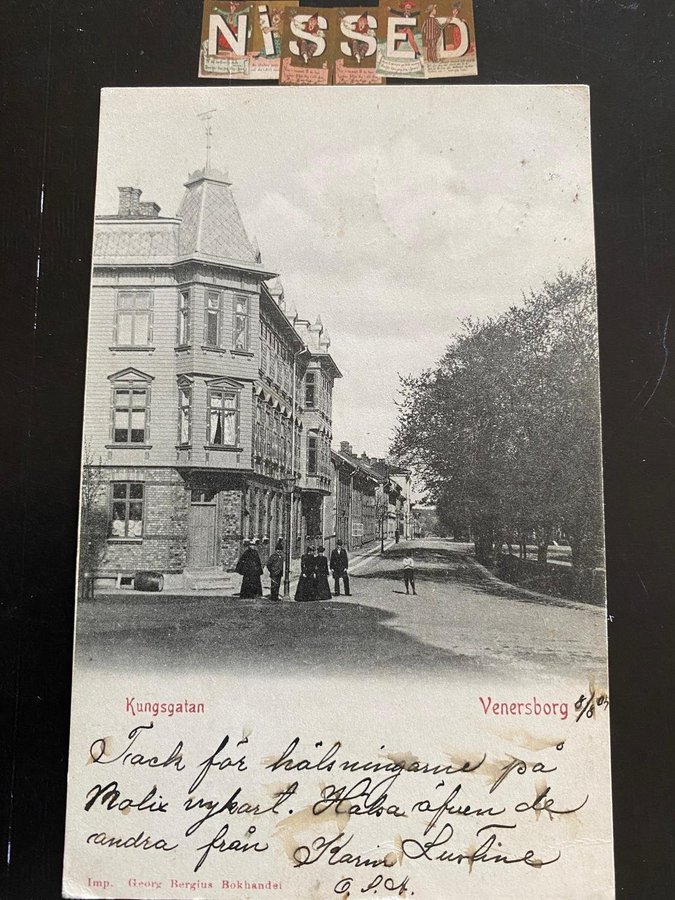 NiSSED
Kungsgatan
Venersborg 8/8 04
Tack för hälsningarne på
vykort. Hälsa äfven de
andra från Karin
Imp. Georg Bergius Bokhandel